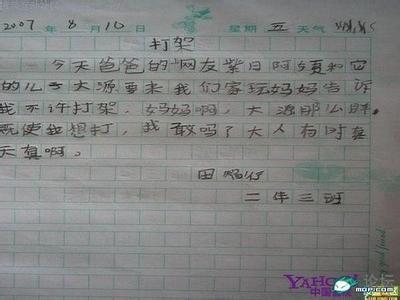 2007 年 8 月 10 日 星期 五 天气
打架
今天爸爸的网友紫日阿姨和它
的儿子大源要来我们家玩妈妈告诉
我不许打架,妈妈啊,大源那么胖。
既使我想打,我敢吗?大人有时真
天真啊。
田
二年三班
YAHOO! 论坛
中国雅虎
MOP.COM